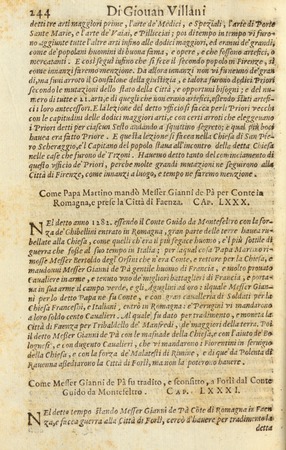 244 Di Giouan Villani
detti tre arti maggiori prime, l'arte de' Medici, e Speziali, l'arte di Porte
Sante Marie, e l'arte de' Vaiai, e Pilliciai; poi di tempo in tempo vi furo-
no aggiunte tutte l'altre arti insino alle dodici maggiori, ed eranui de' grandi,
come de' popolani buomini di buona fama, e opere, e che fossono artefici, o
mercatanti. E così seguì infino che si fece il secondo popolo in Firenze, sì
come innanzi faremo menzione. Da allora innanzi non vi furono de' gran
di, ma furui arroto il Gonfalone della giustizia, e talora furono dodici Priori
secondo le mutazioni dello stato della Città, e opportuni bisogni; e del nu-
mero di tutte 21. arti, e di quegli che non erano artefici, essendo stati artefi-
ci i loro antecessori. La lezione del detto vficio si faceua per li Priori vecchi
con le capitudini delle dodici maggiori arti, e con certi arroti che elegge uano
i Priori detti per ciascun Sesto andando a squittino segreto; e qual più boci
haueua era fatto Priore. E questa lezione si faceua nella Chiesa di San Pie-
ro Scheraggio, e 'l Capitano del popolo staua all'incontro della detta Chiesa
nelle case che furono de' Tizoni. Hauemo detto tanto del cominciamento di
questo vficio de' Priori, perche molte grandi mutazioni ne seguirono alla
Città di Firenze, come innanzi a luogo, e tempo ne faremo menzione.
Come Papa Martino mandò Messer Gianni de Pà per Conte in
Romagna, e prese la Città di Faenza. CAP. LXXX.
NEl detto anno 1282. essendo il Conte Guido da Montefeltro con la for-
za de' Ghibellini entrato in Romagna, gran parte delle terre hauea ru-
bellate alla Chiesa, come quelli ch'era il più sagace huomo, e 'l più sottile di
guerra che fosse al suo tempo in Italia; per la qual cosa Papa Martino ri-
messe Messer Bertoldo degl'Orsini che n'era Conte, e rettore per la Chiesa, e
mandonui Messer Gianni de Pà gentile huomo di Francia, e molto prouato
Caualiere in arme, e tenuto vno de' migliori battaglieri di Francia, e porta-
ua in sua arme il campo verde, e gli Aguglini ad oro; il quale Messer Gian-
ni per lo detto Papa ne fu Conte, e con gran caualleria di Soldati per la
Chiesa Franceschi, e Italiani, entrò in Romagna; e' Perugini vi mandarono a
loro soldo cento Caualieri. Al quale fu dato per tradimento, e moneta la
Città di Faenza per Tribaldello de' Manfredi, de' maggiori della terra. Poi
il detto Messer Gianni de Pà con le masnade della Chiesa, e con l'aiuto de' Bo
lognesi, e con dugento Caualieri, che vi mandarono i Fiorentini in seruigio
della Chiesa, e con la forza de' Malatesti di Rimine, e di que' da Polenta di
Rauenna assediarono la Città di Forlì, ma non la potero hauere.
Come Messer Gianni de Pà fu tradito, e sconfitto, a Forlì dal Conte
Guido da Montefeltro. CAP. LXXXI.
NEl detto tempo stando Messer Gianni de Pà Côte di Romagna in Faen
za, e faccea guerra alla Città di Forlì, cercò d'hauere per tradimento la
detta